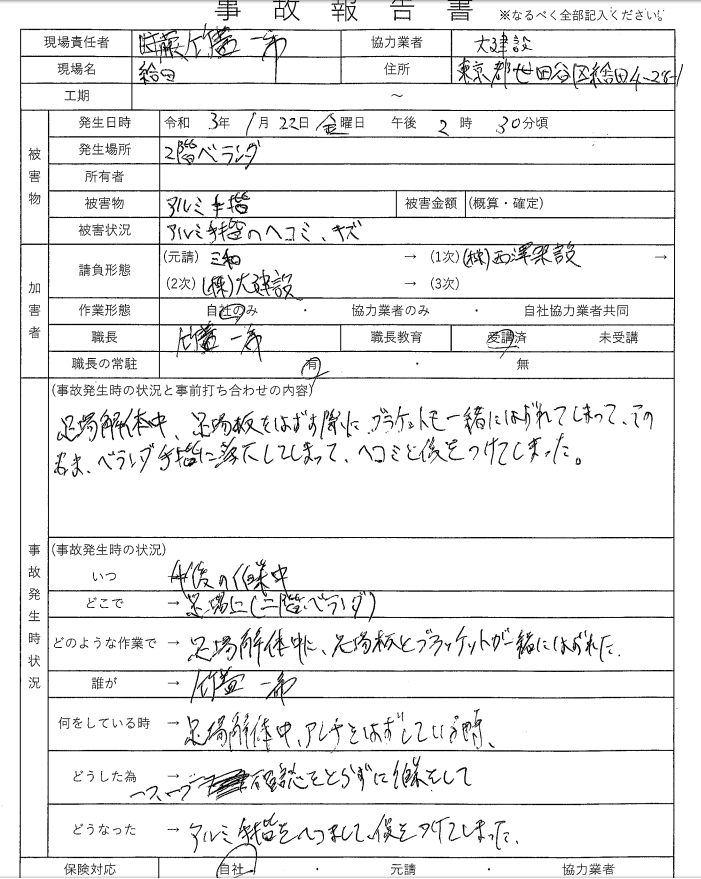 事故報告書 ※なるべく全部記入ください。
現場責任者 竹蓋 一希 協力業者 大建設
現場名 給田 住所 東京都世田谷区給田4-28-1
工期 ～
被害物
発生日時 令和 3年 1月 22日 金曜日 午後 2時 30分頃
発生場所 2階ベランダ
所有者
被害物 アルミ手摺 被害金額 (概算・確定)
被害状況 アルミ手摺のヘコミ、キズ
加害者
請負形態 (元請) 三和 → (1次) (株)西澤架設 →
(2次) (株)大建設 → (3次)
作業形態 自社のみ ・ 協力業者のみ ・ 自社協力業者共同
職長 竹蓋 一希 職長教育 受講済 未受講
職長の常駐 有 ・ 無
事故発生時状況
(事故発生時の状況と事前打ち合わせの内容)
足場解体中、足場板をはずす際に、ブラケットも一緒にはずれてしまって、その
まま、ベランダ手摺に落下してしまって、ヘコミと傷をつけてしまった。
(事故発生時の状況)
いつ 午後の作業中
どこで → 足場上(二階ベランダ)
どのような作業で → 足場解体中に、足場板とブラッケットが一緒にはずれた.
誰が → 竹蓋 一希
何をしている時 → 足場解体中、アンチをはずしている時、
どうした為 → 一つ、一つ 確認をとらずに作業をして
どうなった → アルミ手摺をへこまして、傷をつけてしまった.
保険対応 自社 ・ 元請 ・ 協力業者